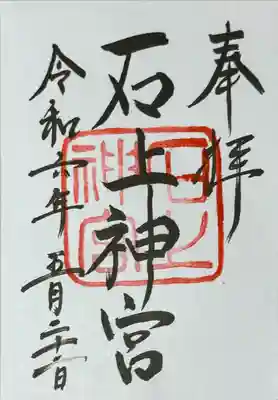 奉拝
石上神宮
石上神宮
令和六年 五月二十一日